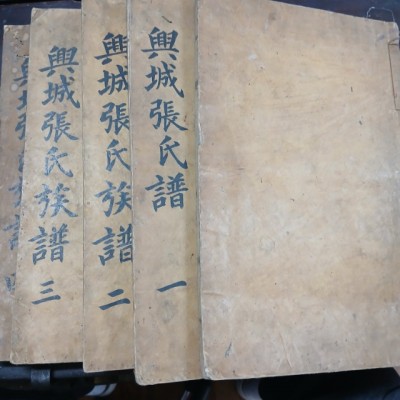 興城張氏譜一
興城張氏族譜二
興城張氏族譜三